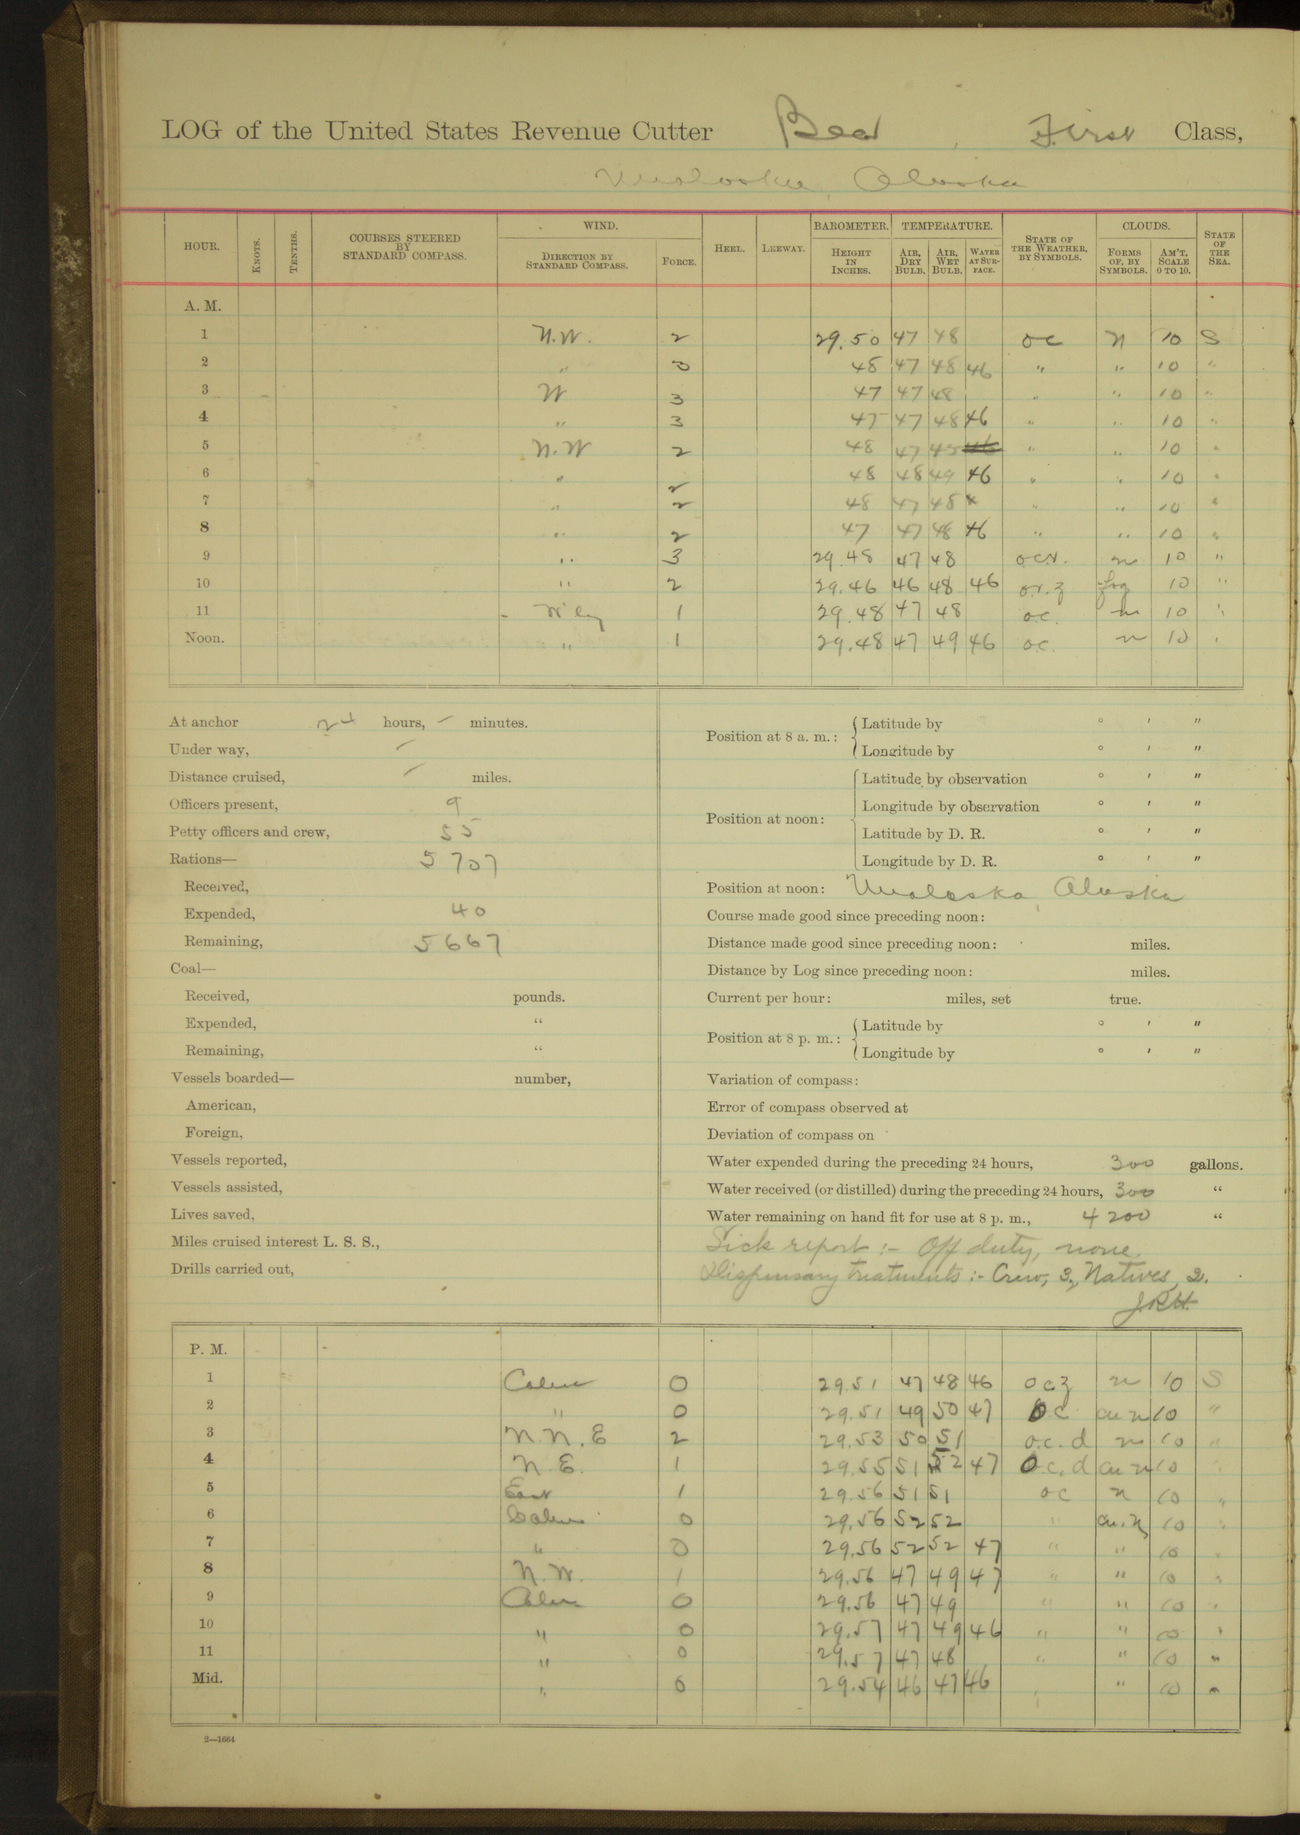 LOG of the United States Revenue Cutter Bear, First Class,
Unalaska, Alaska
HOUR. KNOTS. TENTHS. COURSES STEERED BY STANDARD COMPASS. WIND. DIRECTION BY STANDARD COMPASS. FORCE. HEEL. LEEWAY. BAROMETER. HEIGHT IN INCHES. TEMPERATURE. AIR, DRY BULB. AIR, WET BULB. WATER AT SURFACE. STATE OF THE WEATHER, BY SYMBOLS. CLOUDS. FORMS OF, BY SYMBOLS. AM'T, SCALE 0 TO 10. STATE OF THE SEA.
A. M.
1 N.W. 2 29.50 47 48 oc n 10 S
2 " 3 48 47 48 46 " " 10 "
3 W 3 47 47 48 " " 10 "
4 " 3 47 47 48 46 " " 10 "
5 N.W 2 48 47 48 46 " " 10 "
6 " 2 48 48 49 46 " " 10 "
7 " 2 48 47 48 " " 10 "
8 " 2 47 47 48 46 " " 10 "
9 " 3 29.48 47 48 ocr. n 10 "
10 " 2 29.46 46 48 46 o.r.z fog 10 "
11 W'ly 1 29.48 47 48 oc. n 10 "
Noon. " 1 29.48 47 49 46 oc. n 10 "
At anchor 24 hours, – minutes.
Under way, –
Distance cruised, – miles.
Officers present, 9
Petty officers and crew, 55
Rations— 5707
Received,
Expended, 40
Remaining, 5667
Coal—
Received, pounds.
Expended, "
Remaining, "
Vessels boarded— number,
American,
Foreign,
Vessels reported,
Vessels assisted,
Lives saved,
Miles cruised interest L. S. S.,
Drills carried out,
Position at 8 a. m.: Latitude by ° ' "
Longitude by ° ' "
Position at noon: Latitude by observation ° ' "
Longitude by observation ° ' "
Latitude by D. R. ° ' "
Longitude by D. R. ° ' "
Position at noon: Unalaska, Alaska
Course made good since preceding noon:
Distance made good since preceding noon: miles.
Distance by Log since preceding noon: miles.
Current per hour: miles, set true.
Position at 8 p. m.: Latitude by ° ' "
Longitude by ° ' "
Variation of compass:
Error of compass observed at
Deviation of compass on
Water expended during the preceding 24 hours, 300 gallons.
Water received (or distilled) during the preceding 24 hours, 300 "
Water remaining on hand fit for use at 8 p. m., 4200 "
Sick report:- Off duty, none.
Dispensary treatments:- Crew, 3, Natives, 2.
P. M.
1 Calm 0 29.51 47 48 46 ocz n 10 S
2 " 0 29.51 49 50 47 oc cu n 10 "
3 N.N.E 2 29.53 50 51 o.c.d n 10 "
4 N.E. 1 29.55 51 52 47 o.c.d cu n 10 "
5 East 1 29.56 51 51 oc n 10 "
6 Calm 0 29.56 52 52 " cu.n 10 "
7 " 0 29.56 52 52 47 " " 10 "
8 N.W. 1 29.56 47 49 47 " " 10 "
9 Calm 0 29.56 47 49 " " 10 "
10 " 0 29.57 47 49 46 " " 10 "
11 " 0 29.57 47 48 " " 10 "
Mid. " 0 29.54 46 47 46 " " 10 "
2—1664